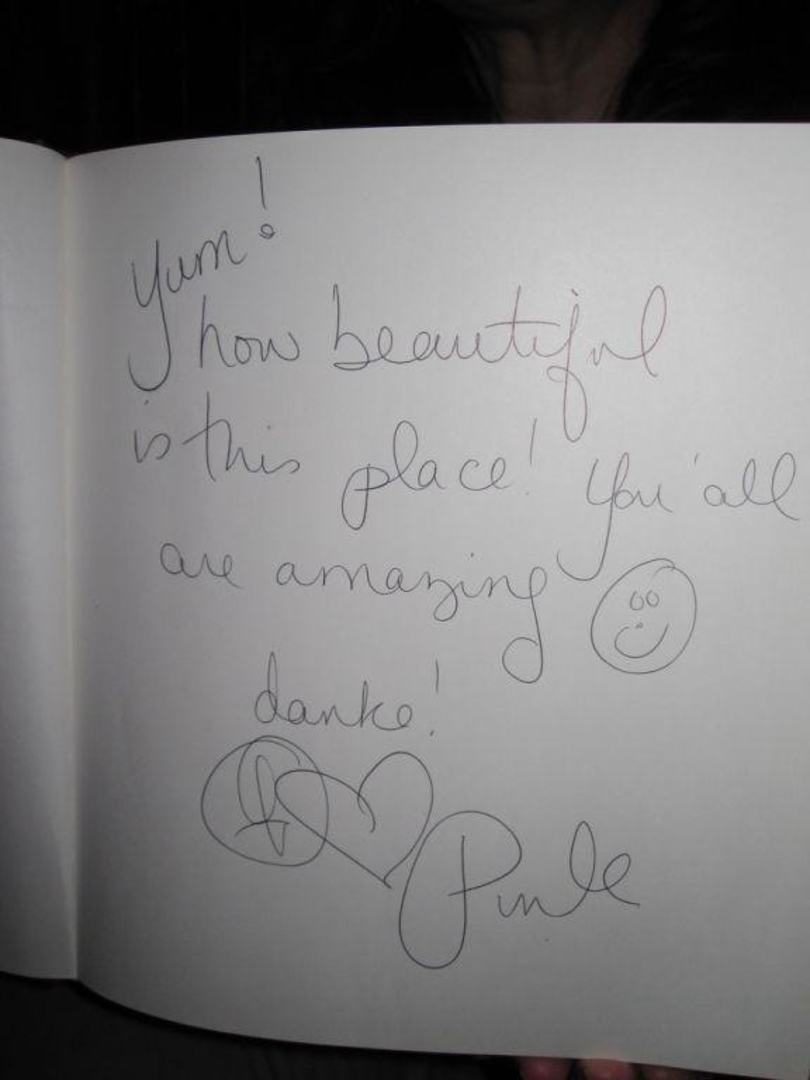 Yum!
how beautiful
is this place! You'all
are amazing
danke!
Pink